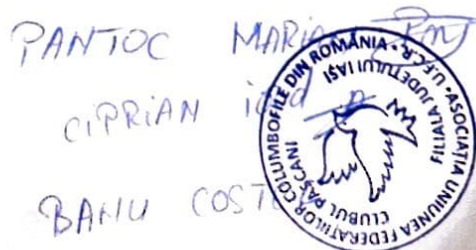 PANTOC MARIA
CIPRIAN
BANU COST
ASOCIAȚIA UNIUNEA FEDERAȚIILOR COLUMBOFILE DIN ROMÂNIA - U.F.C.R.
FILIALA JUDEȚULUI IAȘI
CLUBUL PAȘCANI